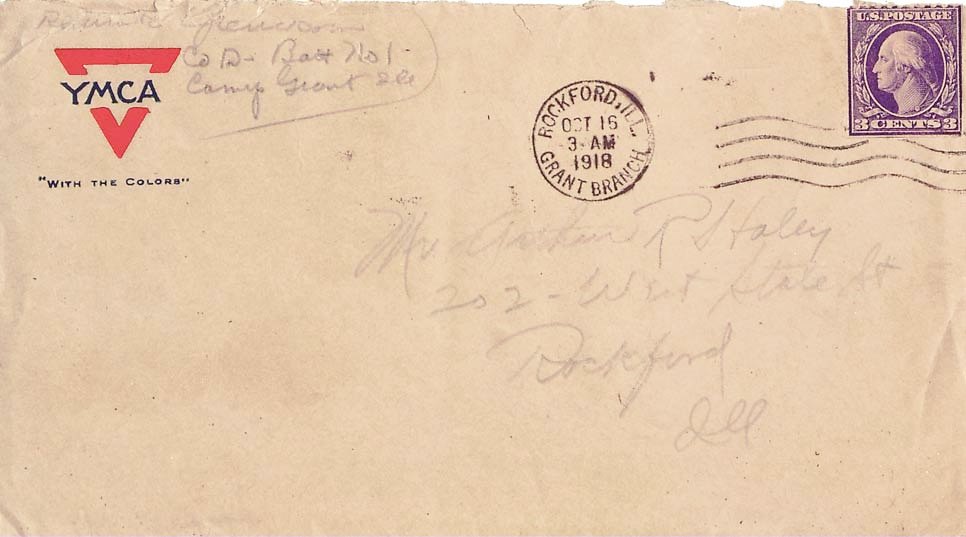 Co D - Batt No 1
Camp Grant Ill
YMCA
"WITH THE COLORS"
ROCKFORD, ILL.
OCT 16
3 - AM
1918
GRANT BRANCH
U.S. POSTAGE
3 CENTS 3
Mr. Arthur R
252 - West State St
Rockford
Ill